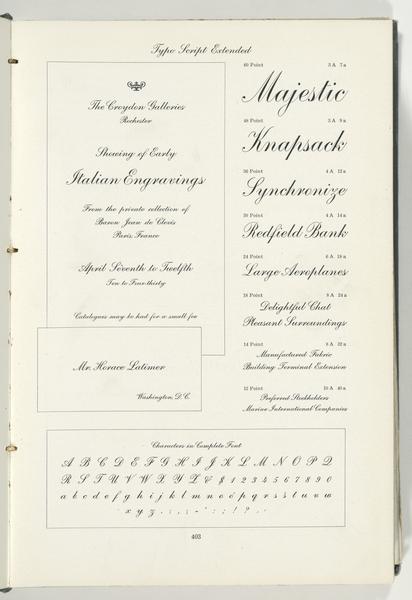 Typo Script Extended
The Croydon Galleries
Rochester
Showing of Early
Italian Engravings
From the private collection of
Baron Jean de Clexis
Paris, France
April Seventh to Twelfth
Ten to Four-thirty
Catalogues may be had for a small fee
Mr. Horace Latimer
Washington, D.C.
60 Point 3 A 7 a
Majestic
48 Point 3 A 9 a
Knapsack
36 Point 4 A 12 a
Synchronize
30 Point 4 A 14 a
Redfield Bank
24 Point 6 A 18 a
Large Aeroplanes
18 Point 8 A 24 a
Delightful Chat
Pleasant Surroundings
14 Point 8 A 32 a
Manufactured Fabric
Building Terminal Extension
12 Point 10 A 40 a
Preferred Stockholders
Marine International Companies
Characters in Complete Font
A B C D E F G H I J K L M N O P Q
R S T U V W X Y Z & $ 1 2 3 4 5 6 7 8 9 0
a b c d e f g h i j k l m n o p q r s t u v w
x y z . , : ; ! ?
403